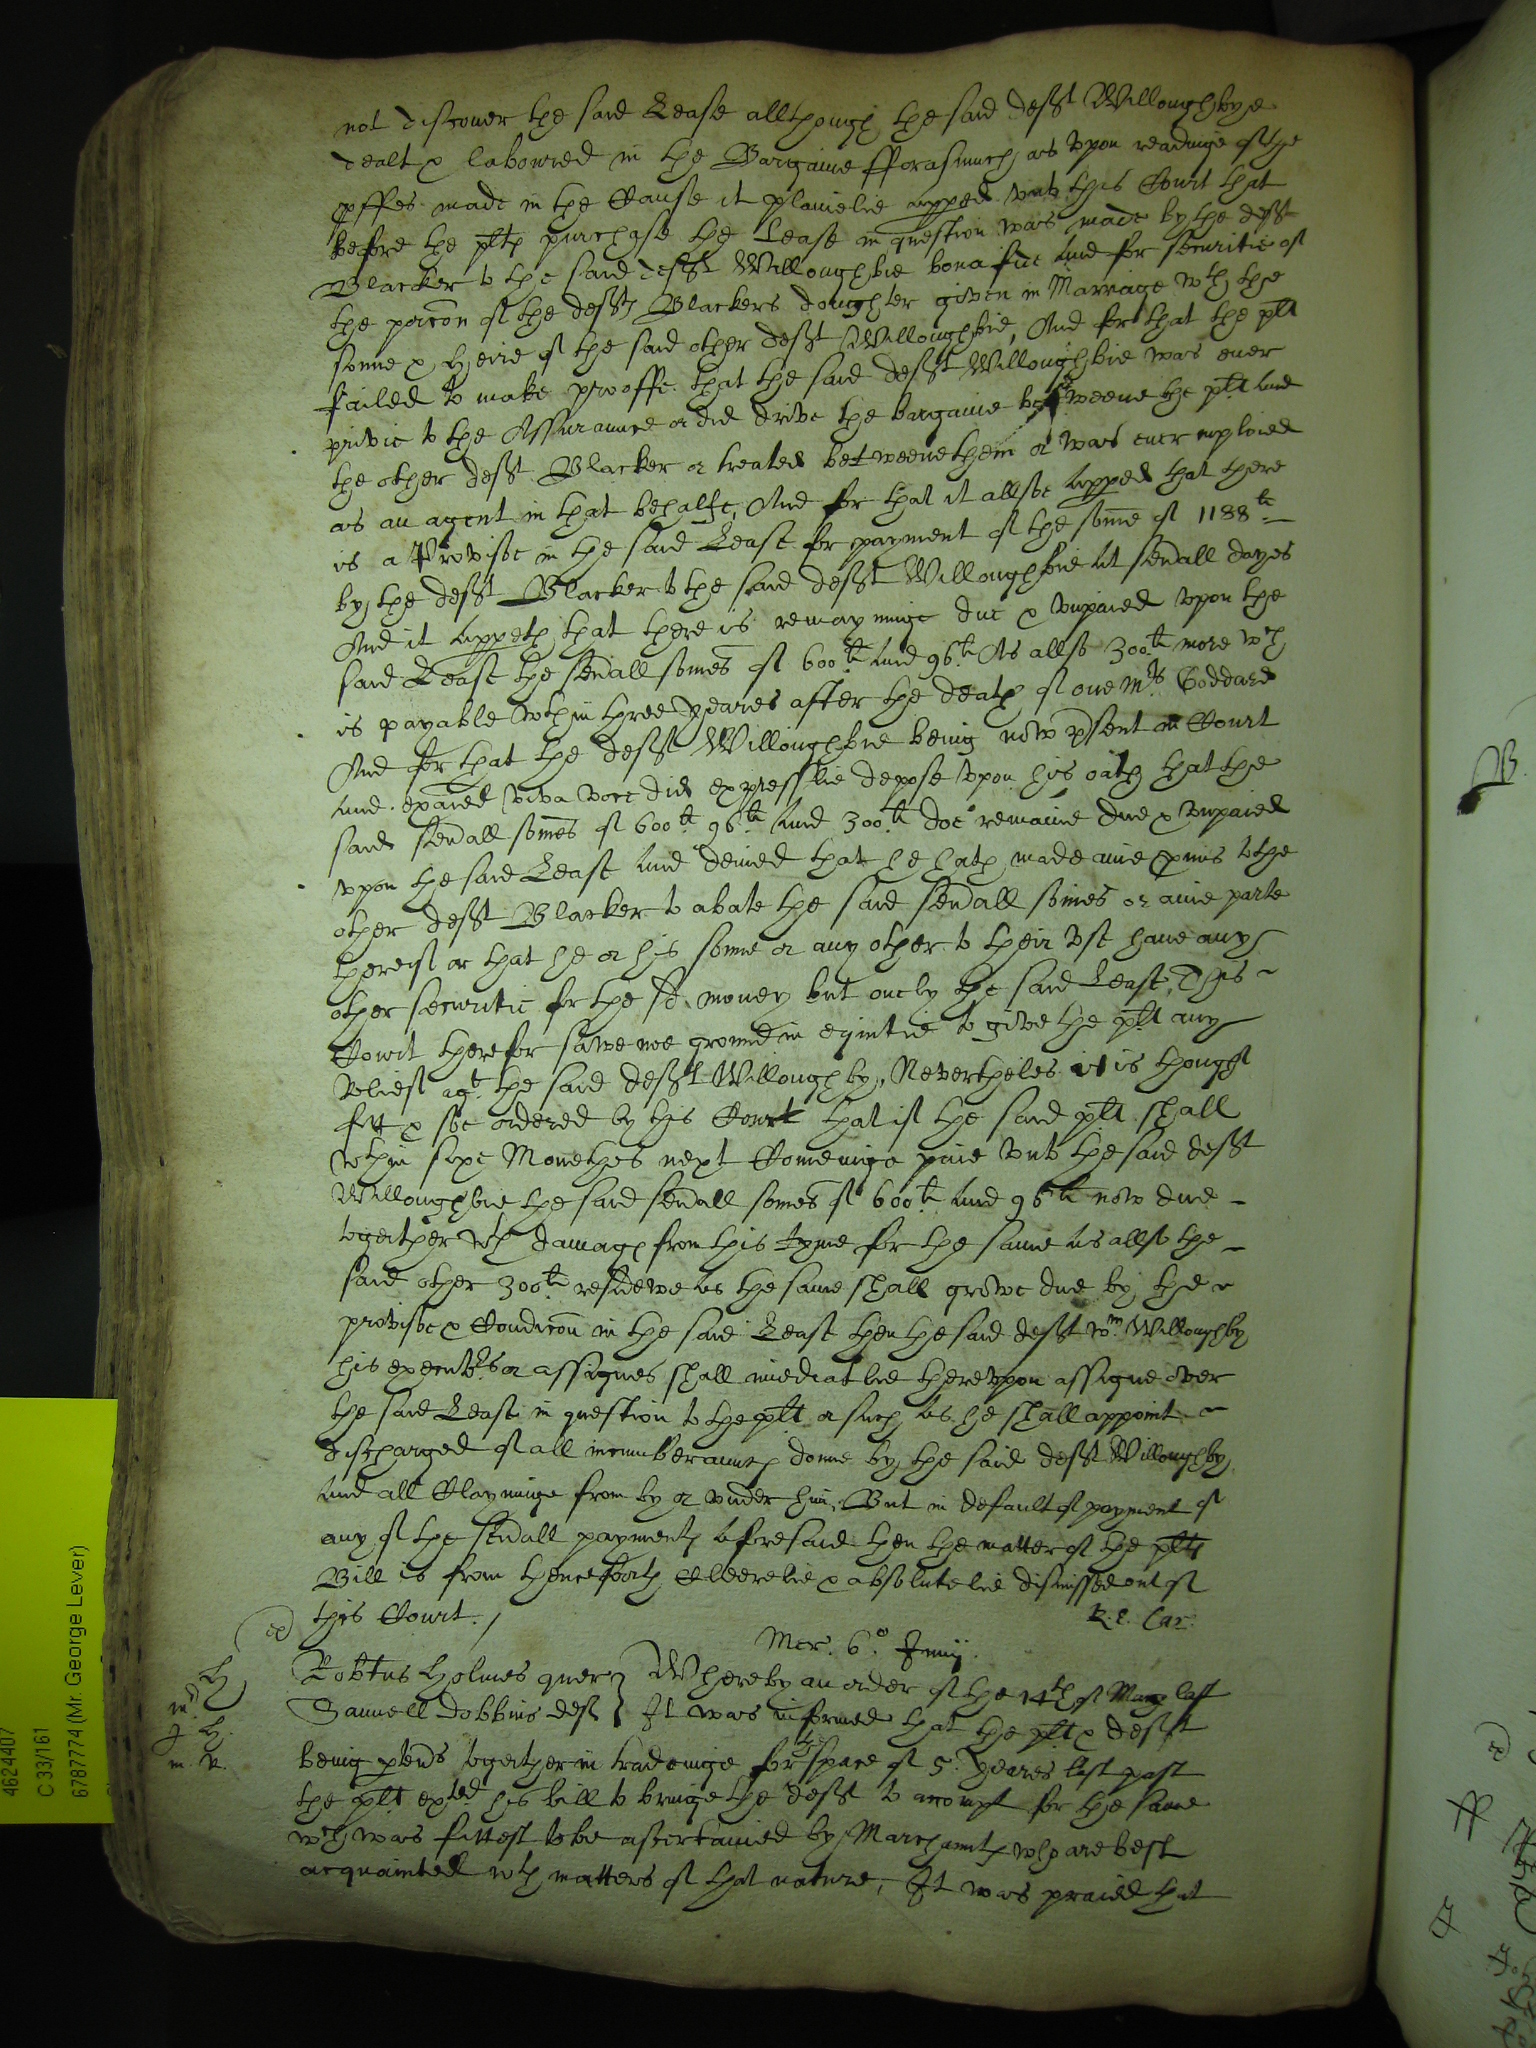 not discover the said Lease allthough the said defft Willoughbye
dealt & laboured in the Bargaine fforasmuch as vpon readinge of the
pffes made in the Cause it plainelie apped vnto this Court that
before the plts purchase the Lease in question was made by the defft
Blacker to the said defft Willoughbie bona fide And for securitie of
the porcon of the deffts Blackers doughter given in Marriage wth the
sonne & heire of the said other defft Willoughbie, And for that the plt
failed to make prooffe that the said defft Willoughbie was ever
privie to the Assuraunce or did drive the bargaine betweene the plt And
the other defft Blacker or treated betweene them or was ever imploied
as an agent in that behalfe, And for that it allsoe apped that there
is a Provisoe in the said Lease for payment of the some of 1188li
by the defft Blacker to the said defft Willoughbie at severall dayes
And it appeth that there is remayninge due & vnpaied vpon the
said Lease the severall somes of 600li And 96li As allso 300li more wch
is payable wthin three yeares after the death of one Mrs Goddard
And for that the defft Willoughbie being now psent in Court
And exaied viva voce did expresslie deppse vpon his oath that the
said severall somes of 600li 96li And 300li doe remaine due & vnpaied
vpon the said Lease And denied that he hath made anie pmis to the
other defft Blacker to abate the said severall somes or anie parte
thereof or that he or his sonne or any other to their vse have any
other securitie for the sd money but onely the said Lease, This
Court therefor sawe noe ground in equitie to give the plt any
Reliefe agt the said defft Willoughby, Neverthelес it is thought
fitt & soe ordered by this Court that if the said plt shall
wthin sixe Monethes next Comeinge paie vnto the said defft
Willoughbie the said severall somes of 600li And 96li now due
togeither wth damages from this tyme for the same As allso the
said other 300li residewe as the same shall growe due by the
provisoe & Condicon in the said Lease then the said defft Wm Willoughby
his executrs or assignes shall imediatlie therevpon assigne over
the said Lease in question to the plt or such as he shall appoint
discharged of all incumberaunces donne by the said defft Willoughby
And all Clayminge from by or vnder him, But in default of payment of
any of the severall payments aforesaid then the matter of the plts
Bill is from henceforth Cleerelie & absolutelie dismissed out of
this Court.
R. E. Car.
Mer. 6o Junij.
Robtus Holmes quer } Whereby an order of the 14th of May last
Samuell Dobbins def } It was informed that the plt & defft
being ptners togeither in tradeinge for the space of 5 yeares last past
the plt exted his bill to bringe the defft to accompt for the same
wch was fittest to be ascertained by Marchaunts who are best
acquainted wth matters of that nature, It was praied that
4624407
C 33/161
6787774 (Mr. George Lever)